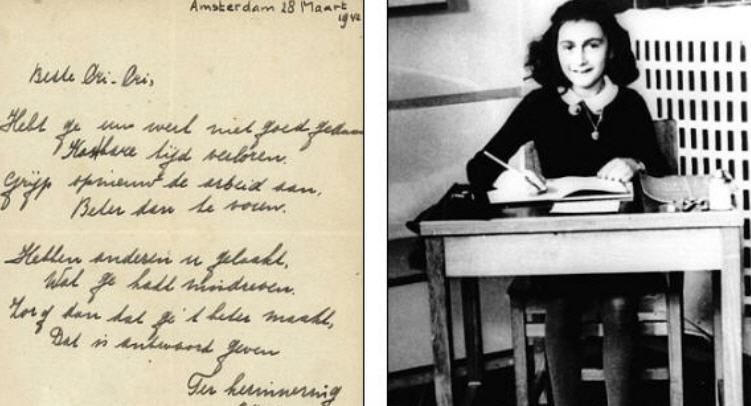 Amsterdam 28 Maart
1942
Beste Cri-Cri,
Hebt ge uw werk niet goed gedaan
Kostbare tijd verloren.
Grijp opnieuw de arbeid aan.
Beter dan te voren.
Hebben anderen u gelaakt,
Wat ge hadt misdreven.
Zorg dan dat ge 't beter maakt,
Dat is antwoord geven
Ter herinnering